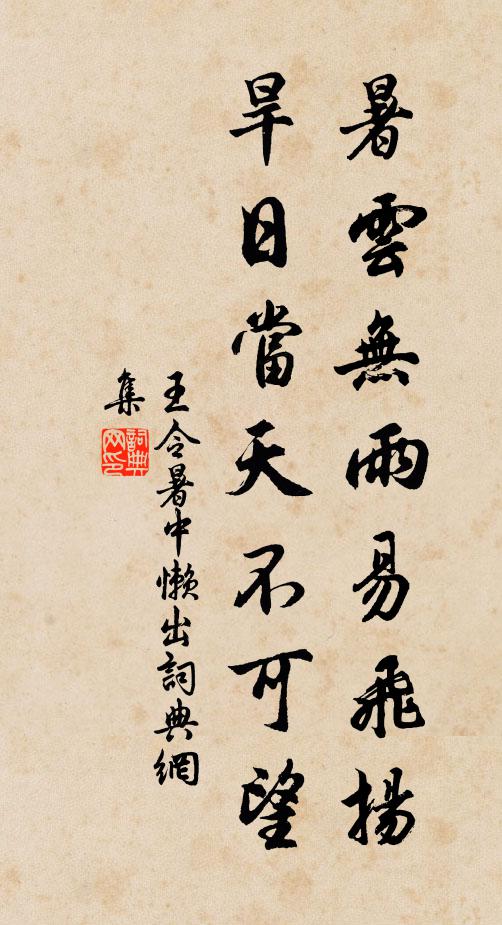 暑雲無雨易飛揚
旱日當天不可望
王令暑中懶出詞典網
集
詞典
网印